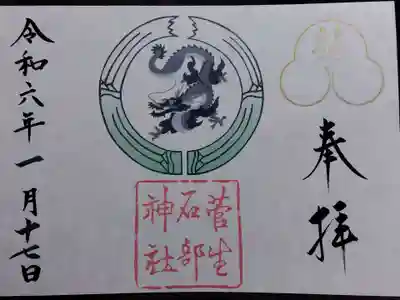 奉拝
菅生
石部
神社
令和六年一月十七日